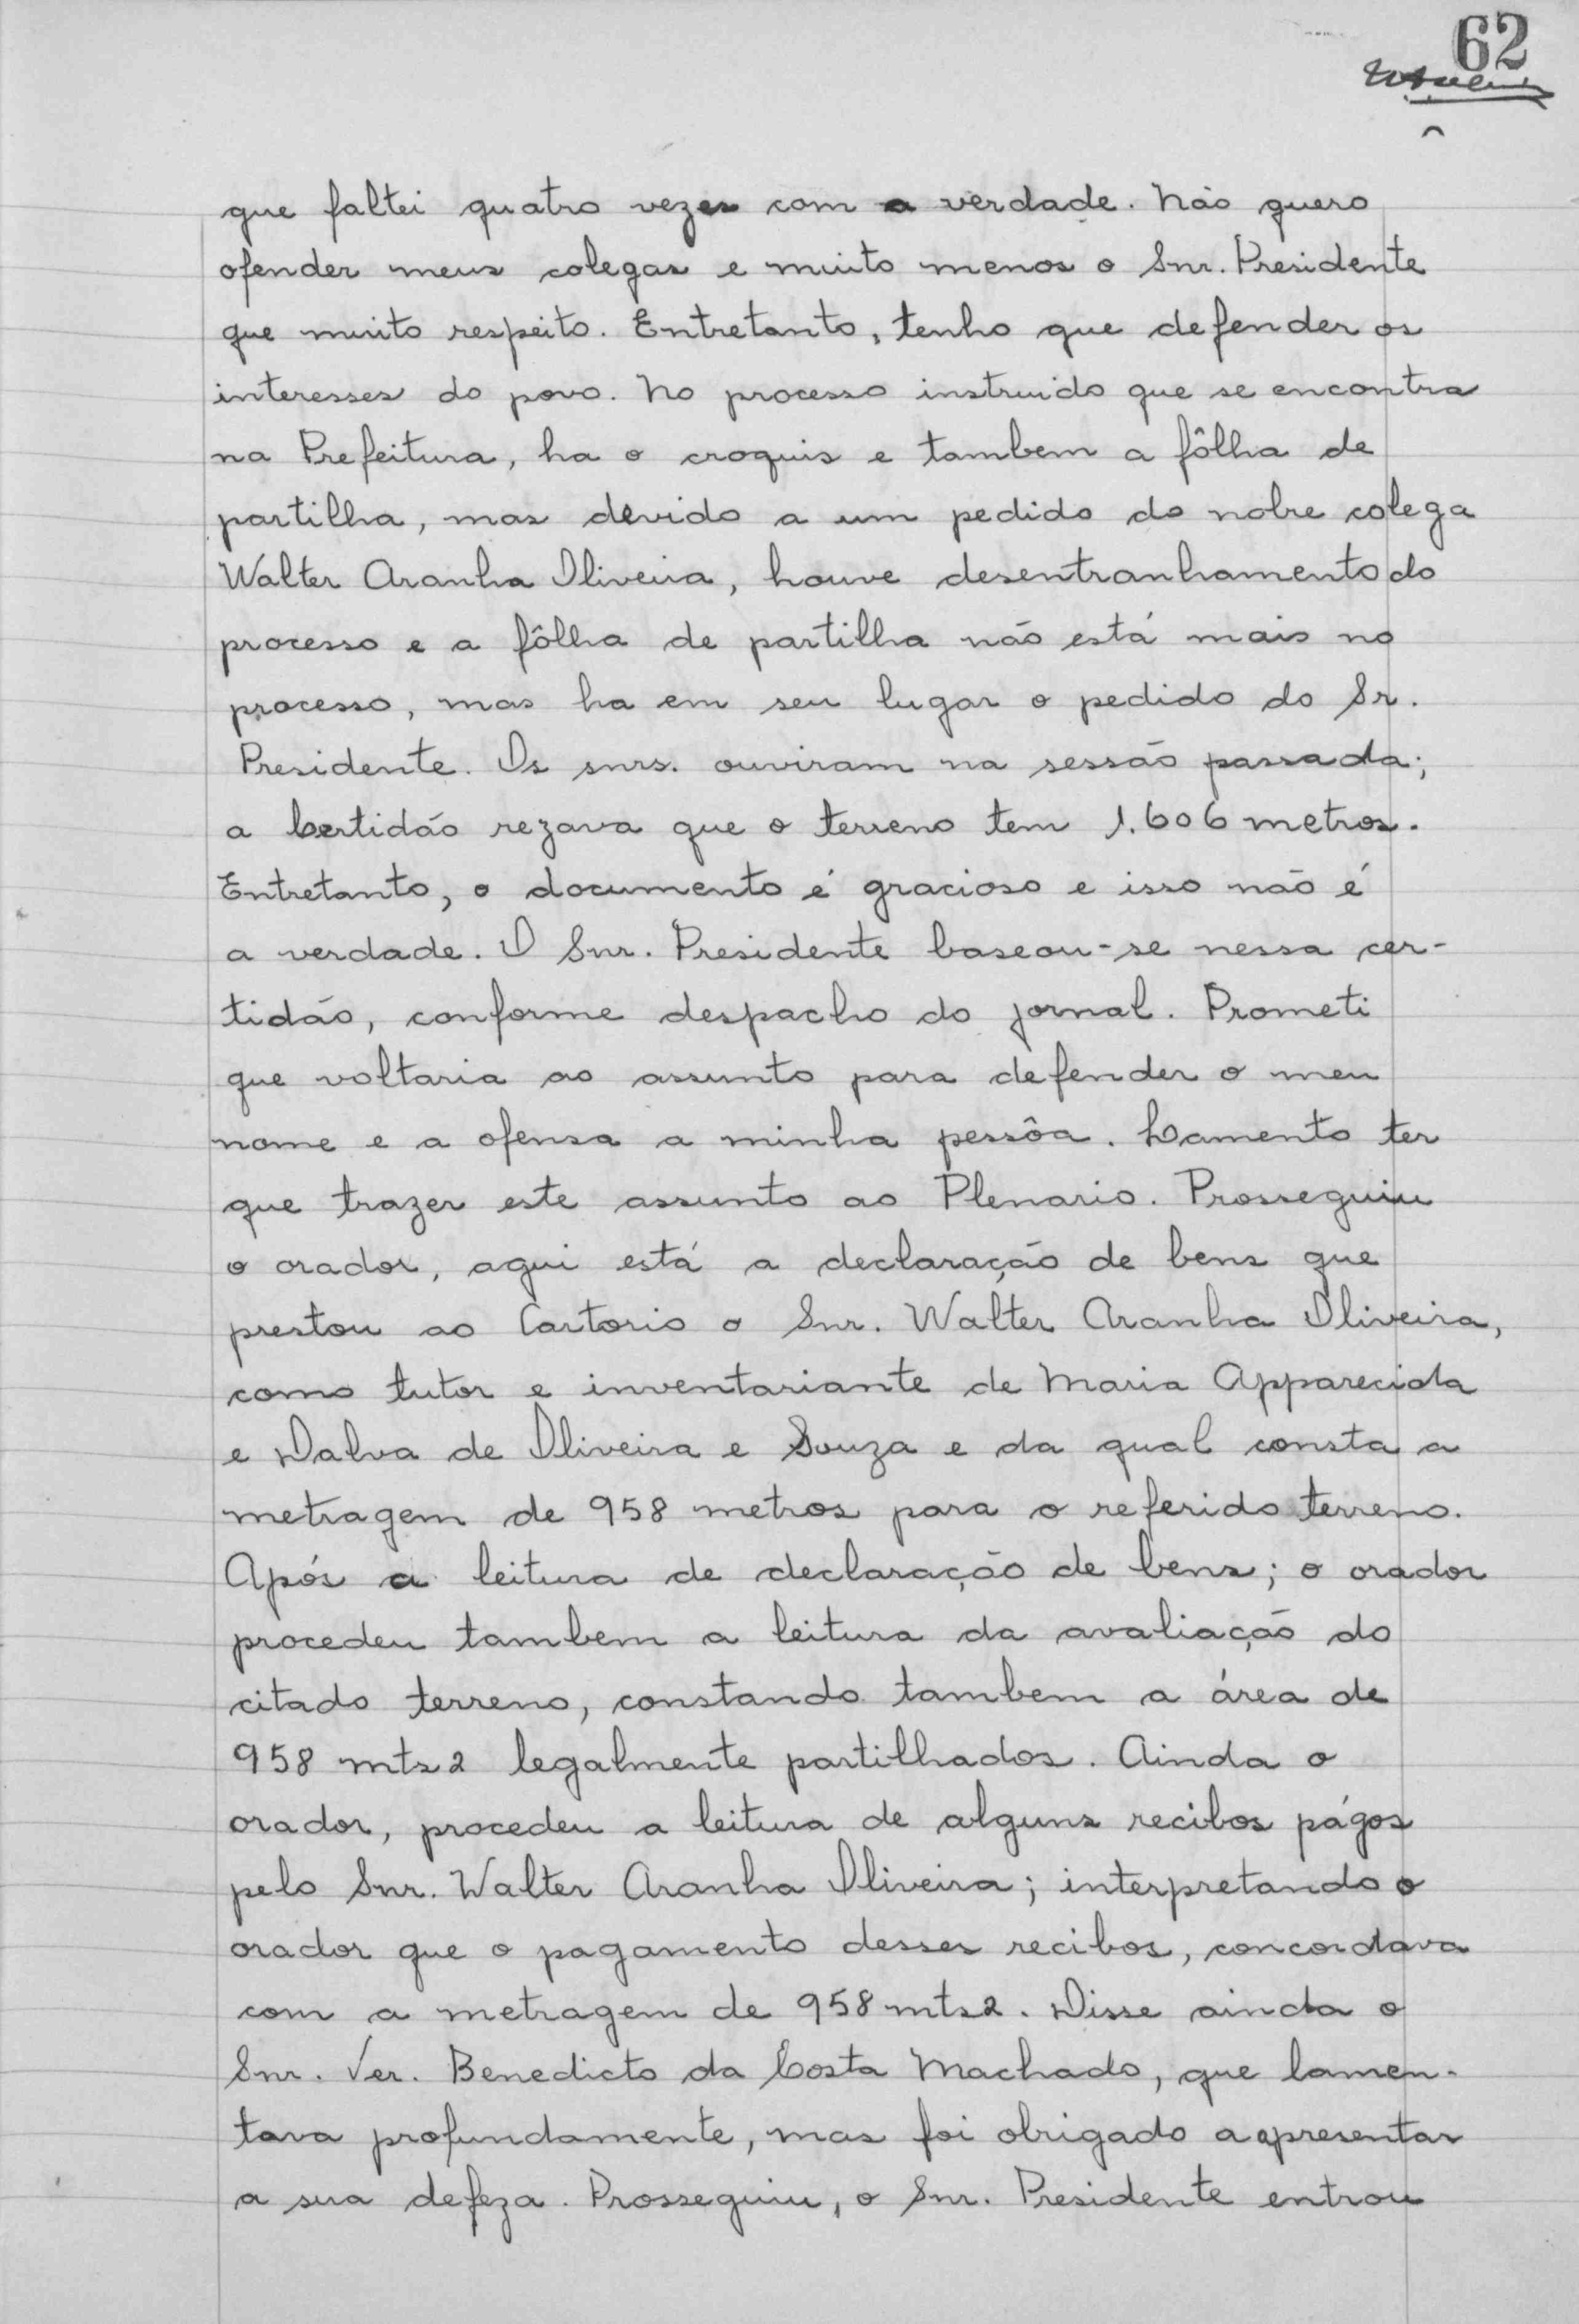 62
que faltei quatro vezes com a verdade. Não quero
ofender meus colegas e muito menos o Snr. Presidente
que muito respeito. Entretanto, tenho que defender os
interesses do povo. No processo instruido que se encontra
na Prefeitura, ha o croquis e tambem a fôlha de
partilha, mas devido a um pedido do nobre colega
Walter Aranha Oliveira, houve desentranhamento do
processo e a fôlha de partilha não está mais no
processo, mas ha em seu lugar o pedido do Sr.
Presidente. Os snrs. ouviram na sessão passada;
a Certidão rezava que o terreno tem 1.606 metros.
Entretanto, o documento é gracioso e isso não é
a verdade. O Snr. Presidente baseou-se nessa cer-
tidão, conforme despacho do jornal. Prometi
que voltaria ao assunto para defender o meu
nome e a ofensa a minha pessôa. Lamento ter
que trazer este assunto ao Plenario. Prosseguiu
o orador, aqui está a declaração de bens que
prestou ao Cartorio o Snr. Walter Aranha Oliveira,
como tutor e inventariante de Maria Apparecida
e Dalva de Oliveira e Souza e da qual consta a
metragem de 958 metros para o referido terreno.
Após a leitura de declaração de bens; o orador
procedeu tambem a leitura da avaliação do
citado terreno, constando tambem a área de
958 mts2 legalmente partilhados. Ainda o
orador, procedeu a leitura de alguns recibos págos
pelo Snr. Walter Aranha Oliveira; interpretando o
orador que o pagamento desses recibos, concordava
com a metragem de 958 mts2. Disse ainda o
Snr. Ver. Benedicto da Costa Machado, que lamen-
tava profundamente, mas foi obrigado a apresentar
a sua defeza. Prosseguiu, o Snr. Presidente entrou